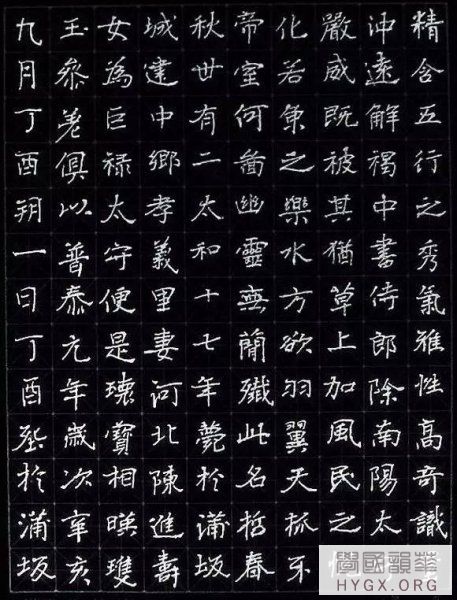 精含五行之秀氣雅性高奇識
沖遠解褐中書侍郎除南陽太
嚴威既被其猶草上加風民之
化若魚之樂水方欲羽翼天抓牙
帝室何啚幽靈無簡殲此名哲春
秋世有二太和十七年薨於蒲坂
城建中鄉孝義里妻河北陳進壽
女為巨祿太守便是瓌寶相暎瓊
玉參差俱以普泰元年歲次辛亥
九月丁酉朔一日丁酉葬於蒲坂
學國韻華
HYGX.ORG